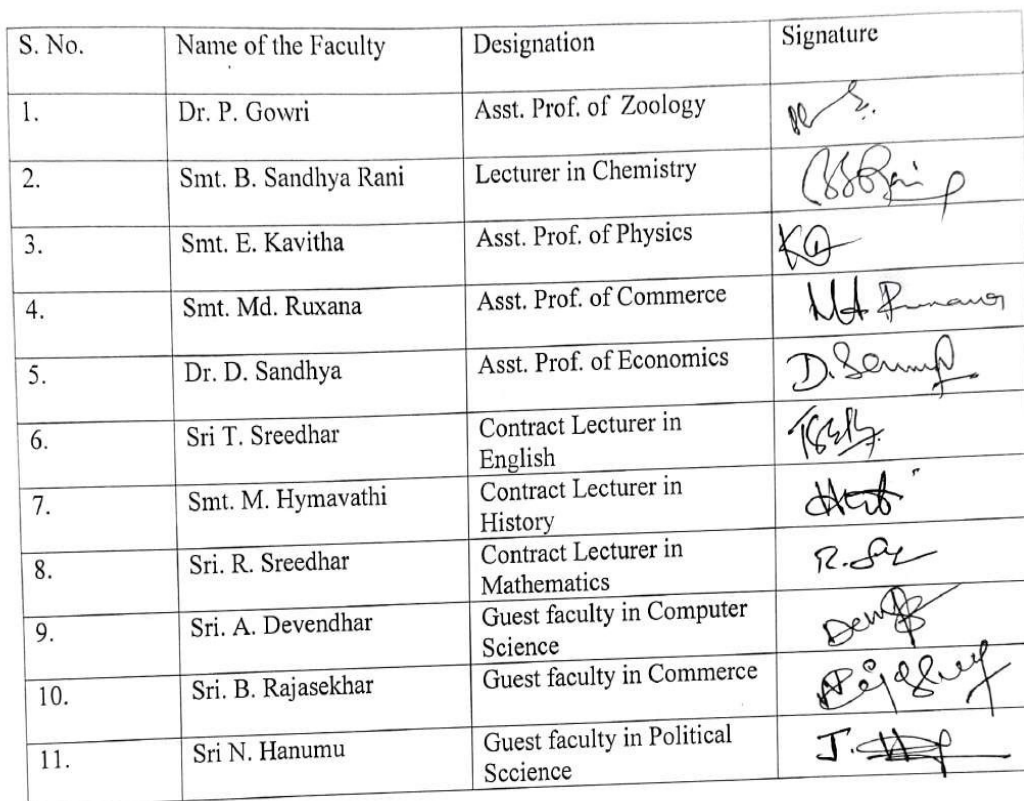 S. No. Name of the Faculty Designation Signature
1. Dr. P. Gowri Asst. Prof. of Zoology
2. Smt. B. Sandhya Rani Lecturer in Chemistry
3. Smt. E. Kavitha Asst. Prof. of Physics
4. Smt. Md. Ruxana Asst. Prof. of Commerce
5. Dr. D. Sandhya Asst. Prof. of Economics
6. Sri T. Sreedhar Contract Lecturer in
English
7. Smt. M. Hymavathi Contract Lecturer in
History
8. Sri. R. Sreedhar Contract Lecturer in
Mathematics
9. Sri. A. Devendhar Guest faculty in Computer
Science
10. Sri. B. Rajasekhar Guest faculty in Commerce
11. Sri N. Hanumu Guest faculty in Political
Sccience